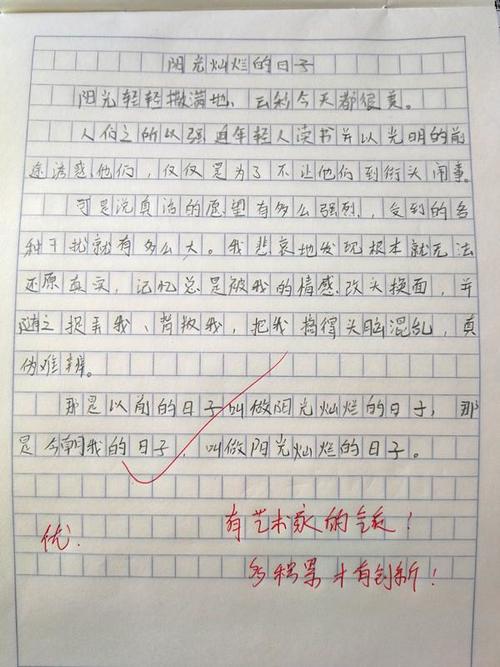 阳光灿烂的日子
阳光轻轻撒满地，云彩今天都很美。
人们之所以强迫年轻人读书并以光明的前
途诱惑他们，仅仅是为了不让他们到街头闹事。
可是说真话的愿望有多么强烈，受到的各
种干扰就有多么大。我悲哀地发现根本就无法
还原真实，记忆总是被我的情感改头换面，并
随之捉弄我、背叛我，把我搞得头脑混乱，真
伪难辨。
那是以前的日子叫做阳光灿烂的日子，那
是今朝我的日子，叫做阳光灿烂的日子。
有艺术家的气质！
优.
多积累才有创新！